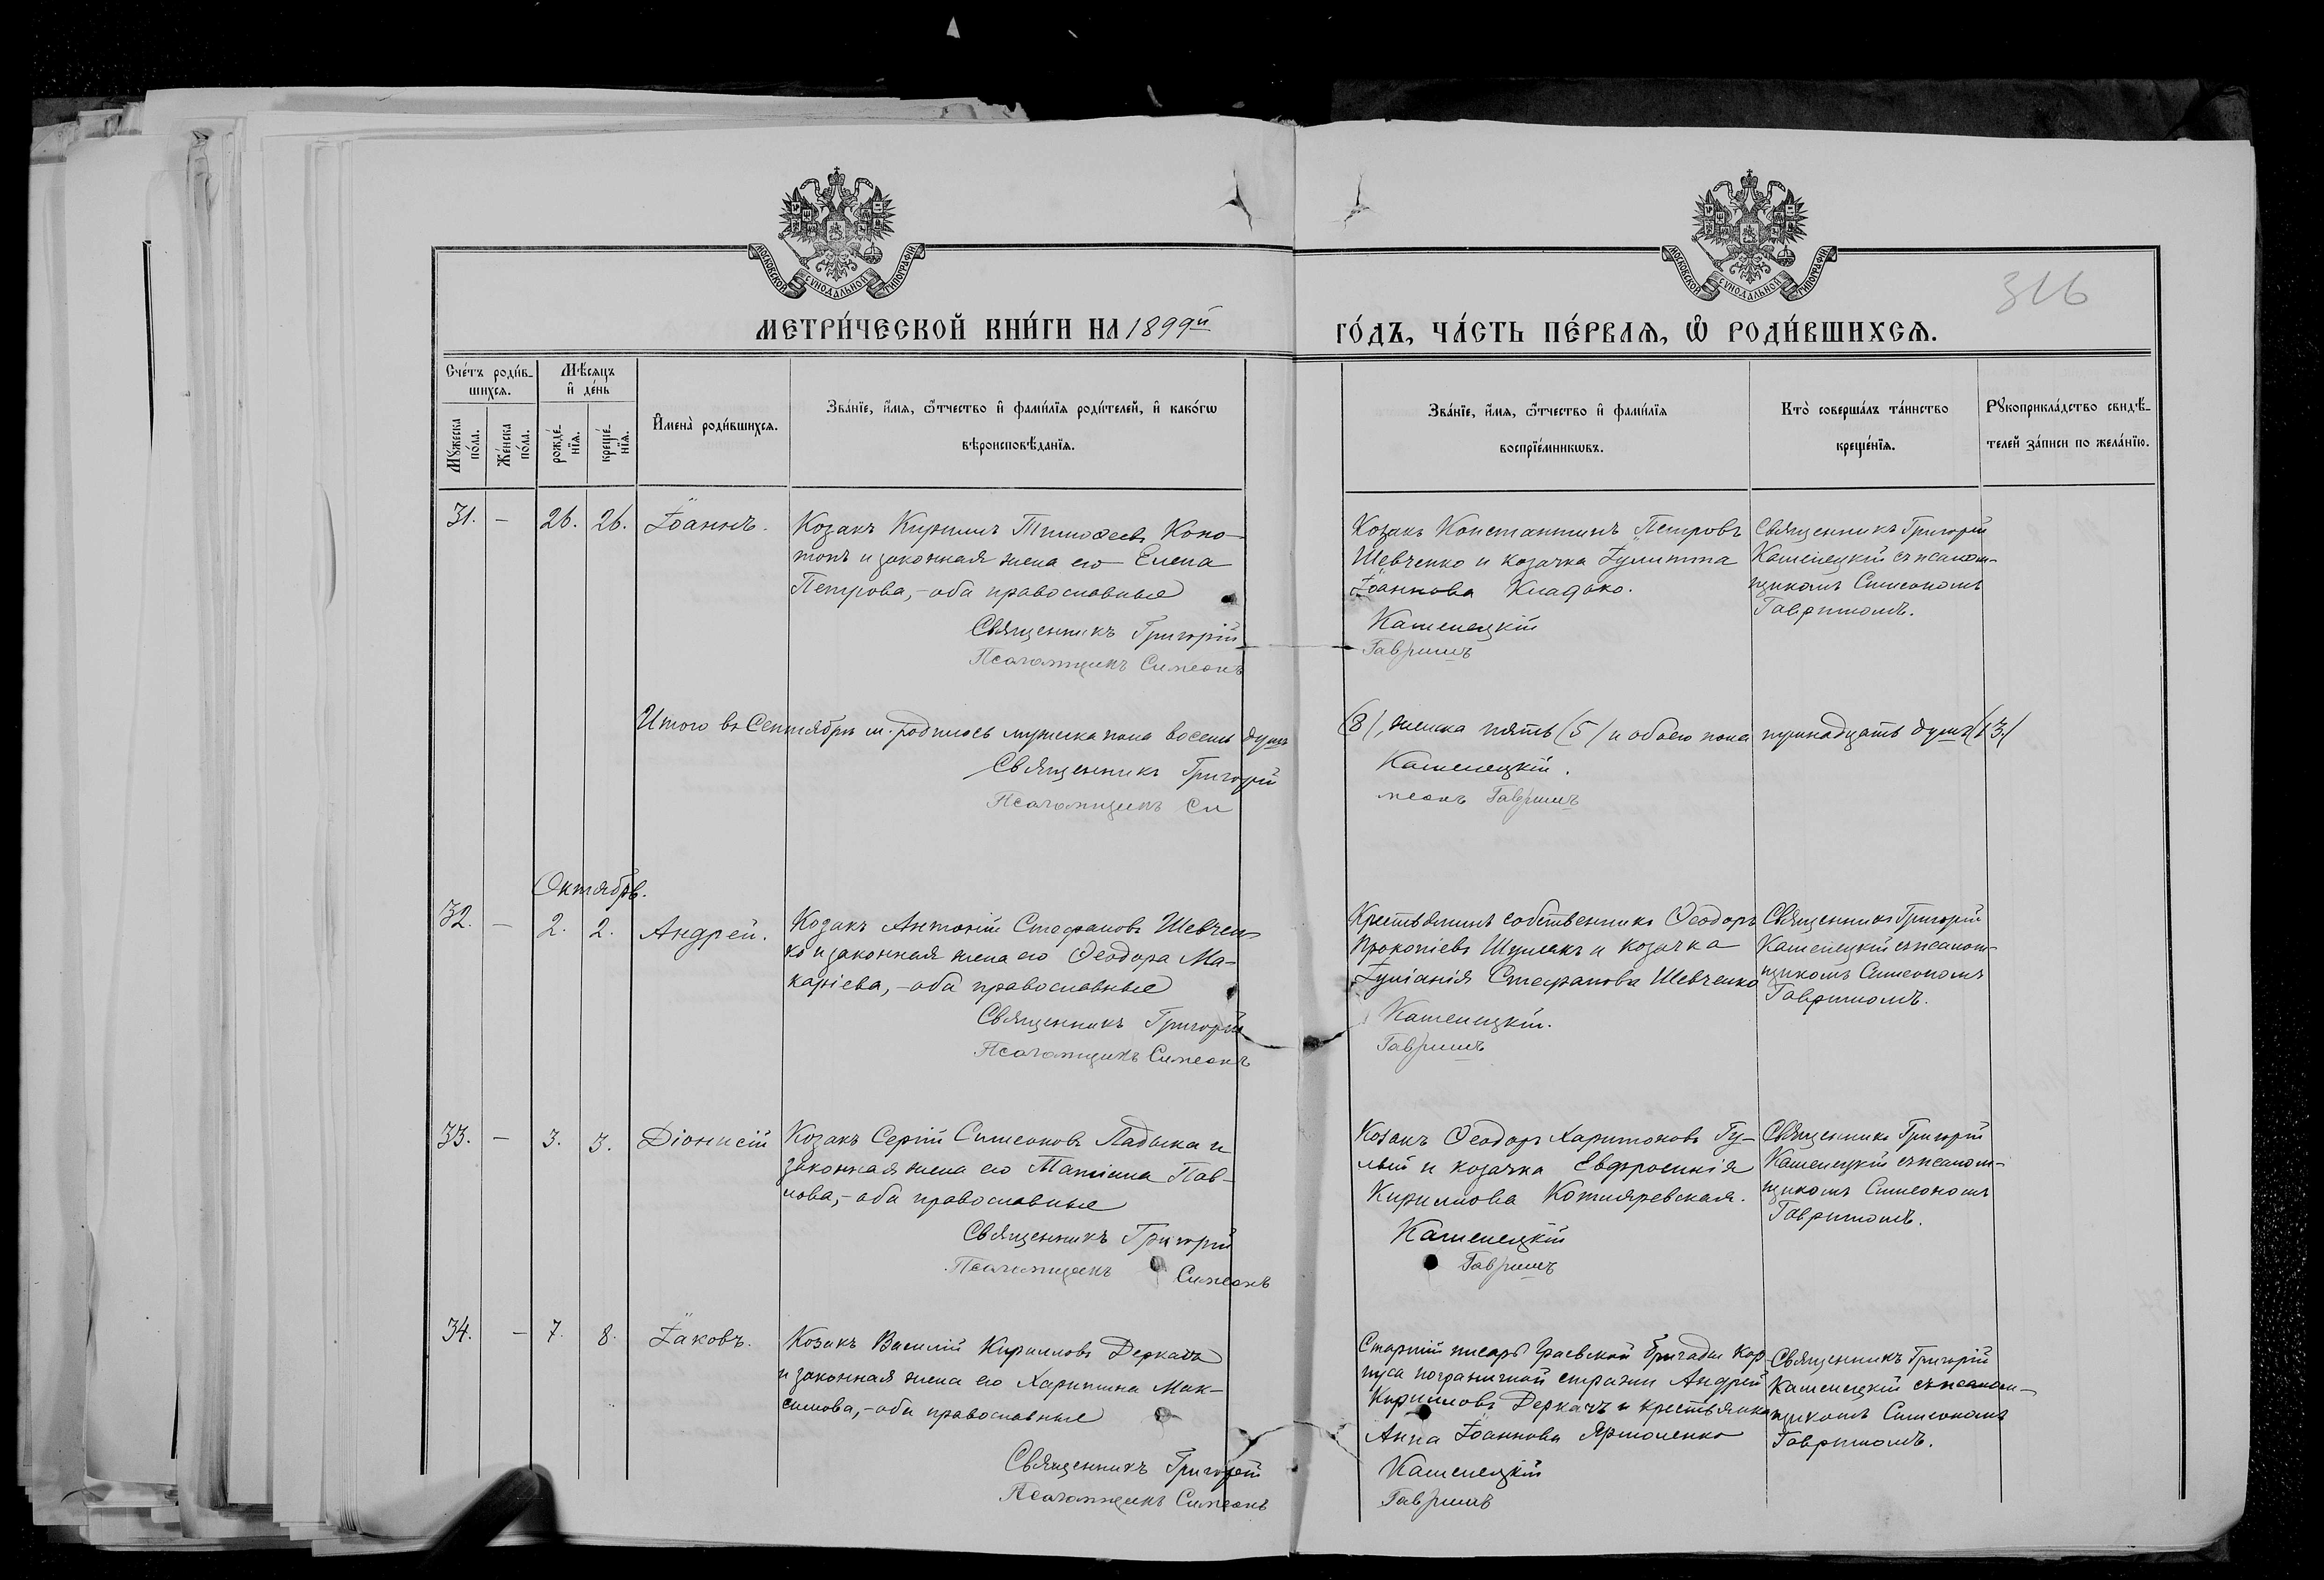 МОСКОВСКОЙ СУНОДАЛЬНОЙ ТИПОГРАФІИ
МОСКОВСКОЙ СУНОДАЛЬНОЙ ТИПОГРАФІИ
316
МЕТРИ́ЧЕСКОЙ КНИ́ГИ НА 1899й
ГО́ДЪ, ЧА́СТЬ ПЕ́РВАѦ, Ѡ РОДИ́ВШИХСѦ.
Сче́тъ роди́в-
шихсѧ.
Мꙋжеска по́ла.
Же́нска по́ла.
Мѣ́сѧцъ
и҆ де́нь
рожде́-
нїѧ.
креще́-
нїѧ.
И҆мена̀ роди́вшихсѧ.
Зва́нїе, и҆́мѧ, ѻ҆́тчество и҆ фами́лїѧ роди́телей, и҆ како́гѡ
вѣроисповѣ́данїѧ.
Зва́нїе, и҆́мѧ, ѻ҆́тчество и҆ фами́лїѧ
воспрїе́мникѡвъ.
Кто̀ соверша́лъ та́инство
креще́нїѧ.
Рꙋкоприкла́дство свидѣ́-
телей за́писи по жела́нїю.
31. — 26. 26. Іоаннъ.
Козакъ Кириллъ Тимоѳеевъ Коно-
топъ и законная жена его Елена
Петрова, - оба православные
Священникъ Григорій
Псаломщикъ Симеонъ
Козакъ Константинъ Петровъ
Шевченко и козачка Іулитта
Іоаннова Кладько.
Каменецкій
Гавришъ
Священникъ Григорій
Каменецкій съ псалом-
щикомъ Симеономъ
Гавришомъ.
Итого въ Сентябрѣ м. родилось мужска пола восемь душъ (8), женска пять (5) и обоего пола тринадцать душъ (13)
Священникъ Григорій Каменецкій.
Псаломщикъ Симеонъ Гавришъ
Октябрь.
32. — 2. 2. Андрей.
Козакъ Антоній Стефановъ Шевчен-
ко и законная жена его Ѳеодора Ма-
каріева, - оба православные
Священникъ Григорій
Псаломщикъ Симеонъ
Крестьянинъ собственникъ Ѳеодоръ
Прокопіевъ Шумакъ и козачка
Іуліанія Стефанова Шевченко
Каменецкій.
Гавришъ
Священникъ Григорій
Каменецкій съ псалом-
щикомъ Симеономъ
Гавришомъ.
33. — 3. 3. Діонисій
Козакъ Сергій Симеоновъ Ладыка и
законная жена его Татіана Пав-
лова, - оба православные
Священникъ Григорій
Псаломщикъ Симеонъ
Козакъ Ѳеодоръ Харитоновъ Гу-
лый и козачка Евфросинія
Кириллова Котляревская.
Каменецкій
Гавришъ
Священникъ Григорій
Каменецкій съ псалом-
щикомъ Симеономъ
Гавришомъ.
34. — 7. 8. Іаковъ.
Козакъ Василій Кирилловъ Деркачъ
и законная жена его Харитина Мак-
симова, - оба православные
Священникъ Григорій
Псаломщикъ Симеонъ
Старшій писарь Граевской бригады кор-
пуса пограничной стражи Андрей
Кирилловъ Деркачъ и крестьянка
Анна Іоаннова Ярмоленко
Каменецкій
Гавришъ
Священникъ Григорій
Каменецкій съ псалом-
щикомъ Симеономъ
Гавришомъ.